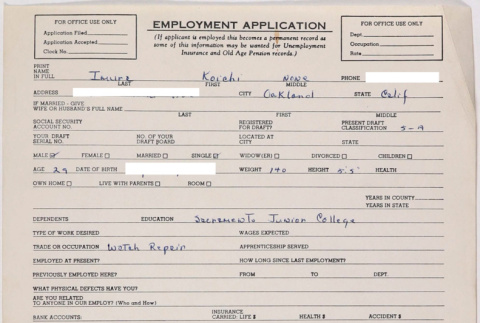 FOR OFFICE USE ONLY
Application Filed
Application Accepted
Clock No.
EMPLOYMENT APPLICATION
(If applicant is employed this becomes a permanent record as
some of this information may be wanted for Unemployment
Insurance and Old Age Pension records.)
FOR OFFICE USE ONLY
Dept.
Occupation
Rate
PRINT
NAME
IN FULL Koichi NONE PHONE
LAST FIRST MIDDLE
ADDRESS CITY Oakland STATE Calif
IF MARRIED - GIVE LAST FIRST MIDDLE
WIFE OR HUSBAND'S FULL NAME
SOCIAL SECURITY REGISTERED PRESENT DRAFT
ACCOUNT NO. FOR DRAFT? CLASSIFICATION
YOUR DRAFT NO. OF YOUR LOCATED AT
SERIAL NO. DRAFT BOARD CITY STATE
MALE FEMALE MARRIED SINGLE WIDOW(ER) DIVORCED CHILDREN
AGE 29 DATE OF BIRTH WEIGHT 140 HEIGHT 5'5" HEALTH
OWN HOME LIVE WITH PARENTS ROOM
YEARS IN COUNTY
YEARS IN STATE
DEPENDENTS EDUCATION Sacramento Junior College
TYPE OF WORK DESIRED WAGES EXPECTED
TRADE OR OCCUPATION Watch Repair APPRENTICESHIP SERVED
EMPLOYED AT PRESENT? HOW LONG SINCE LAST EMPLOYMENT?
PREVIOUSLY EMPLOYED HERE? FROM TO DEPT.
WHAT PHYSICAL DEFECTS HAVE YOU?
ARE YOU RELATED
TO ANYONE IN OUR EMPLOY? (Who and How)
INSURANCE
BANK ACCOUNTS: CARRIED: LIFE $ HEALTH $ ACCIDENT $